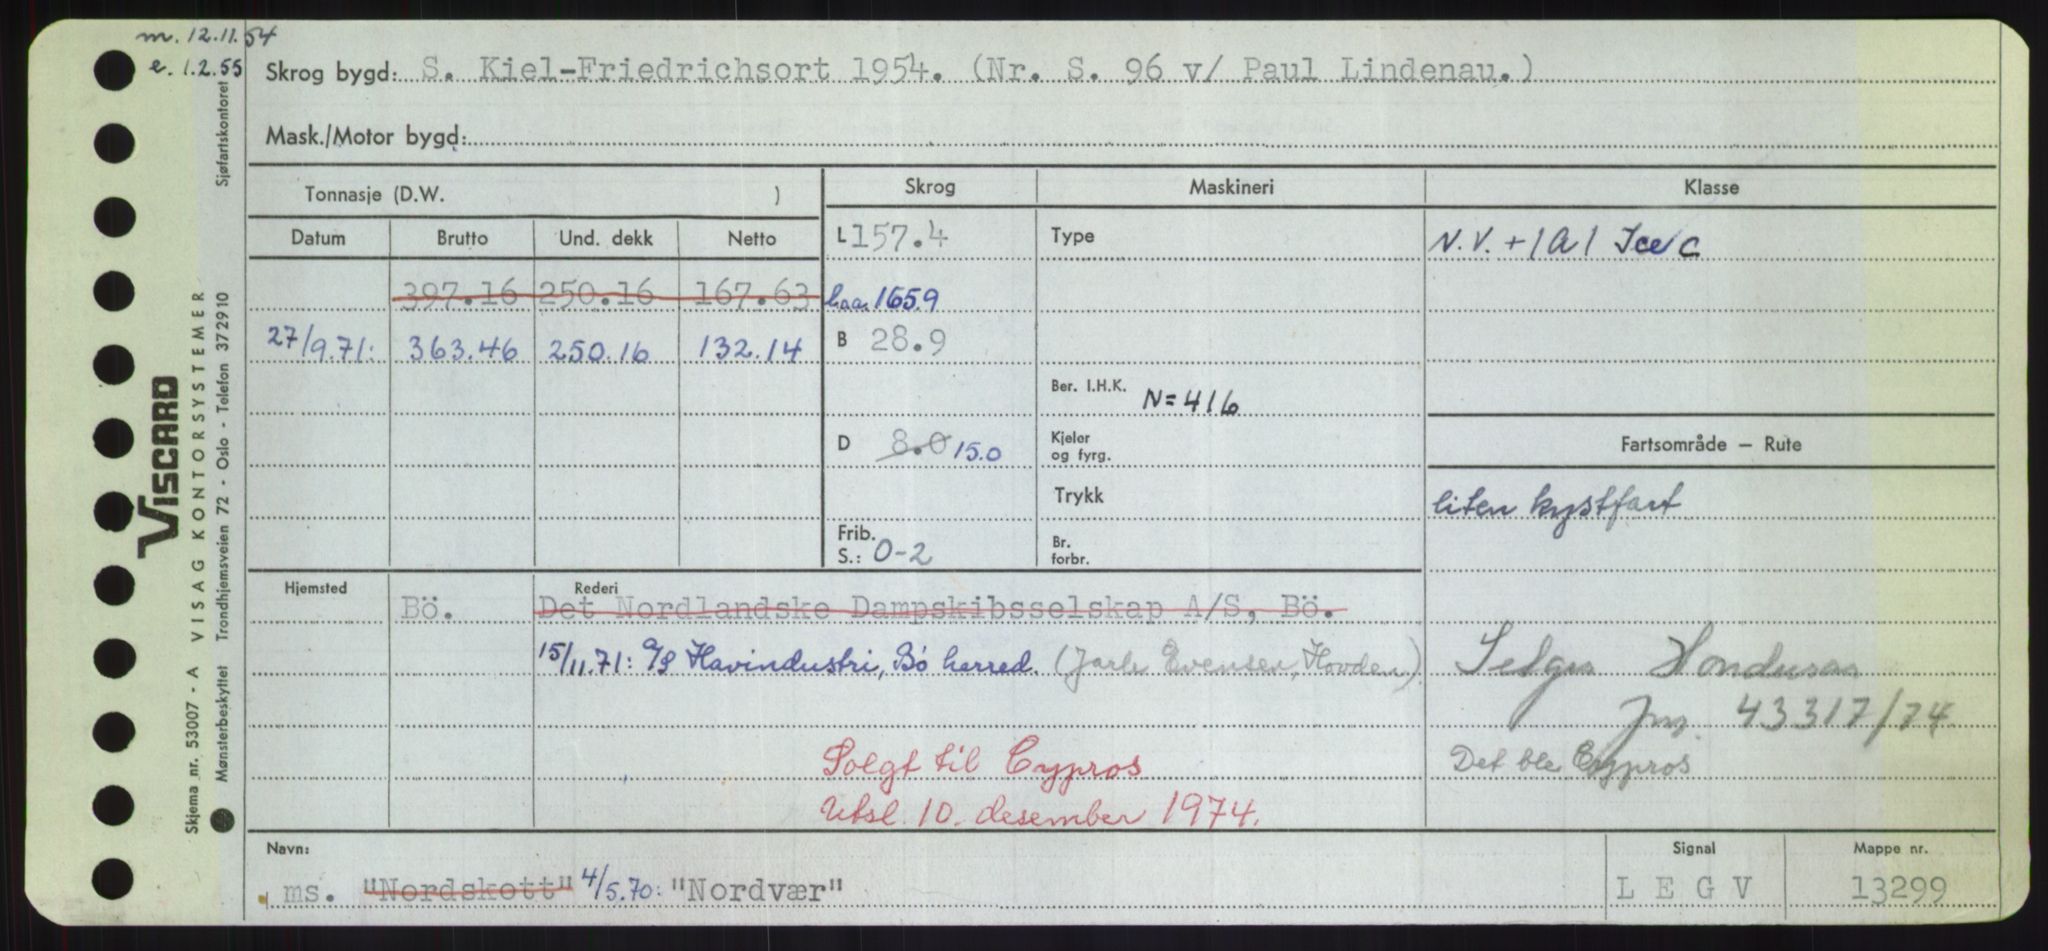 m. 12.11.54
e. 1.2.55
Skrog bygd: S. Kiel-Friedrichsort 1954. (Nr. S. 96 v/ Paul Lindenau.)
Mask./Motor bygd:
Tonnasje (D.W. )
Skrog Maskineri Klasse
Datum Brutto Und. dekk Netto L 157.4 Type N.V. + 1A1 Ice C
397.16 250.16 167.63 Loa. 165.9
27/9.71: 363.46 250.16 132.14 B 28.9
Ber. I.H.K. N=416
D 8.0 15.0 Kjeler og fyrg. Fartsområde — Rute
Trykk liten kystfart
Frib. S.: 0-2 Br. forbr.
Hjemsted Rederi
Bö. Det Nordlandske Dampskibsselskap A/S, Bö.
15/11.71: A/S Havindustri, Bö herred. (Jarle Evensen, Hovden) Selges Honduras
Jnr. 43317/74
Solgt til Cypros Det ble Cypros
Utsl. 10. desember 1974.
Navn: Signal Mappe nr.
ms. "Nordskott" 4/5.70: "Nordvær" L E G V 13299
VISCARD
Skjema nr. 53007 - A VISAG KONTORSYSTEMER
Mønsterbeskyttet Trondhjemsveien 72 - Oslo - Telefon 372910 Sjøfartskontoret